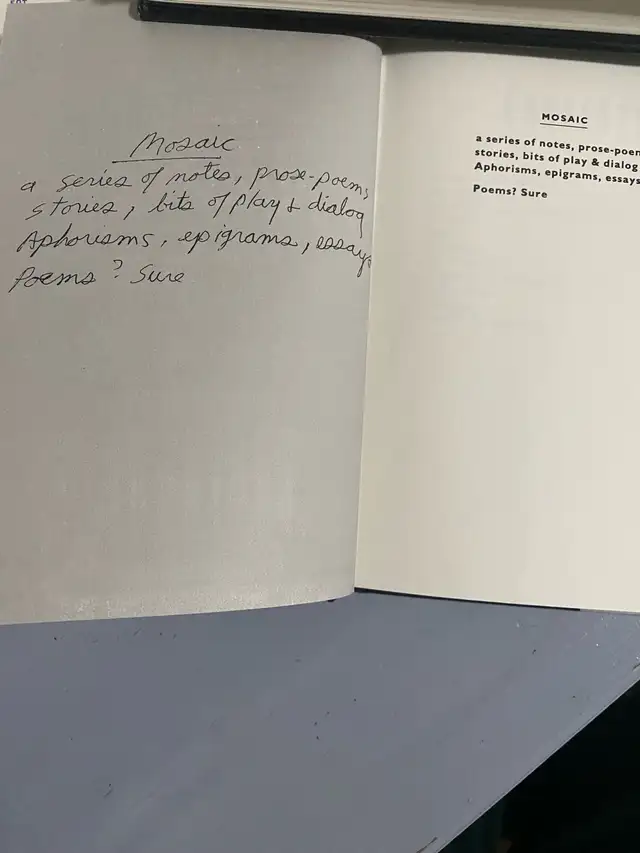 Mosaic
a series of notes, prose-poems,
stories, bits of play & dialog
Aphorisms, epigrams, essays
Poems? Sure
MOSAIC
a series of notes, prose-poem
stories, bits of play & dialog
Aphorisms, epigrams, essays
Poems? Sure